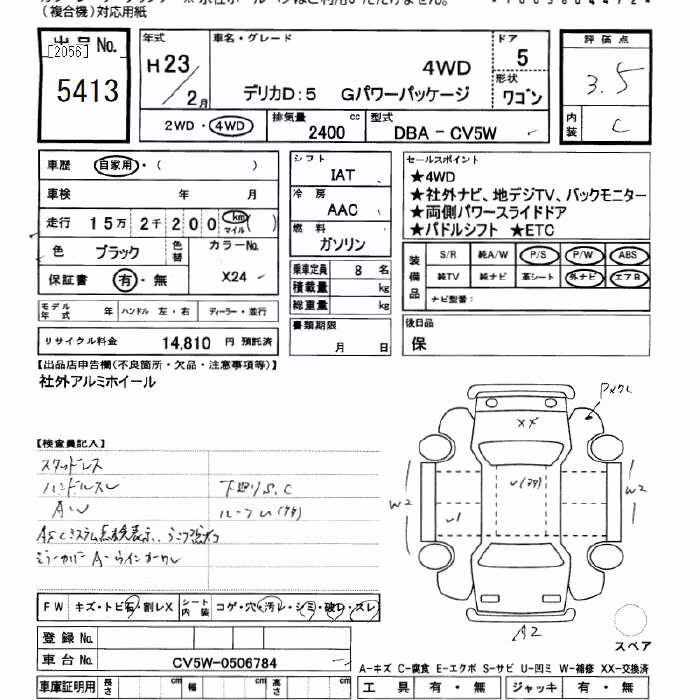 (複合機)対応用紙
出品No.
[2056]
5413
年式
H 23 / 2月
車名・グレード
4WD
デリカD:5 Gパワーパッケージ
ドア
5
形状
ワゴン
評価点
3.5
内装
C
2WD・4WD
排気量 2400 cc
型式 DBA - CV5W
車歴 自家用・( )
車検 年 月
走行 15万2千200 km マイル ( )
色 ブラック 色替 カラーNo.
保証書 有・無 X24
モデル年式 年 ハンドル 左・右 ディーラー・並行
リサイクル料金 14,810 円 預託済
シフト
IAT
冷房
AAC
燃料
ガソリン
乗車定員 8 名
積載量 kg
総重量 kg
書類期限
月 日
セールスポイント
★4WD
★社外ナビ、地デジTV、バックモニター
★両側パワースライドドア
★パドルシフト ★ETC
装備品
S/R 純A/W P/S P/W ABS
純TV 純ナビ 革シート 外ナビ エアB
ナビ型番:
後日品
保
【出品店申告欄(不良箇所・欠品・注意事項等)】
社外アルミホイール
【検査員記入】
スタッドレス
ハンドルスレ
AW
下廻りS.C
ルーフU(多数)
XX
U(多数)
W2
U1
W2
A2
スペア
FW キズ・トビ石・割レX シート内装 コゲ・穴・汚レ・シミ・破レ・スレ
登録No.
車台No. CV5W-0506784
A-キズ C-腐食 E-エクボ S-サビ U-凹ミ W-補修 XX-交換済
車庫証明用 長さ cm 幅 cm 高さ cm
工具 有・無 ジャッキ 有・無